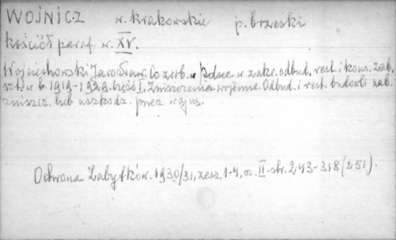 WOJNICZ w. krakowskie p. brzeski
kościół paraf. w. XV.
Wojciechowski Jarosław: Co zrob. w Polsce w zakr. odbud. rest. i kons. zab.
szt. w l. 1919-1929. Część I. Zniszczenia wojenne. Odbud. i rest. budowli zab.
zniszcz. lub uszkodz. przez wojnę.
Ochrona Zabytków. 1930/31, zesz. 1-4, cz. II - str. 243-318 (251).